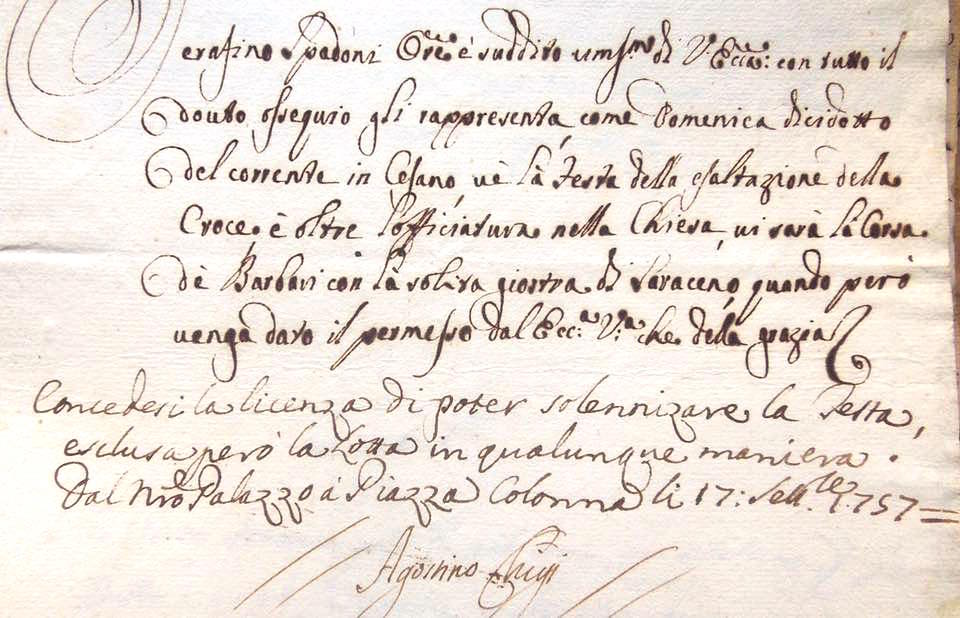 erafino Spadoni Ore è suddito umsmo di V. Ecca: con tutto il
douto ossequio gli rappresenta come Domenica dicidotto
del corrente in Cesano, ue là festa della esaltazione della
Croce, è oltre l'officiatura nella Chiesa, ui sarà là Corsa
dè Barbari con là solita giostra di Saraceno, quando però
uenga dato il permesso dal Ecc:a V:a che della grazia
Concedesi la licenza di poter solennizare la Festa,
esclusa però la Lotta in qualunque maniera.
Dal Nro Palazzo à Piazza Colonna li 17: Settbre 1757=
Agostino Chigi